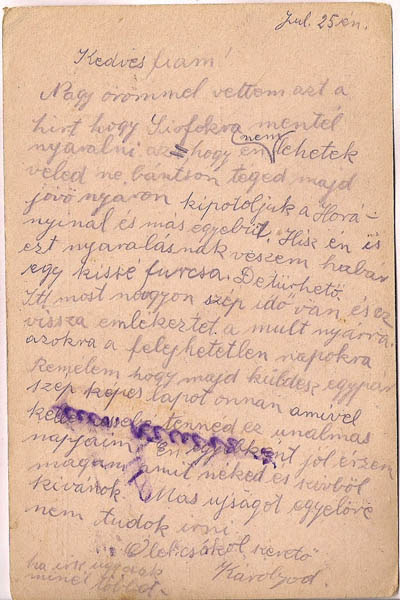 Jul. 25 én.
Kedves fiam!
Nagy örömmel vettem azt a
hirt hogy Siófokra mentél
nyaralni az hogy én nem lehetek
veled ne bántson téged majd
jövő nyáron kipótoljuk a Horá-
nyinál és más egyebüt. Hisz én is
ezt nyaralásnak veszem habár
egy kissé furcsa. De türhető
Itt most nagyon szép idő van és ez
vissza emlékeztet a mult nyárra
azokra a felejhetetlen napokra
Remélem hogy majd küldesz egypár
szép képes lapot onnan amivel
tennéd ez unalmas
napjaim. Én egyébként jól érzem
magam amit néked is szivből
kivánok. Más ujságot egyelőre
nem tudok irni.
Ölel csókol szerető
Károlyod.
ha irsz
minél többet.